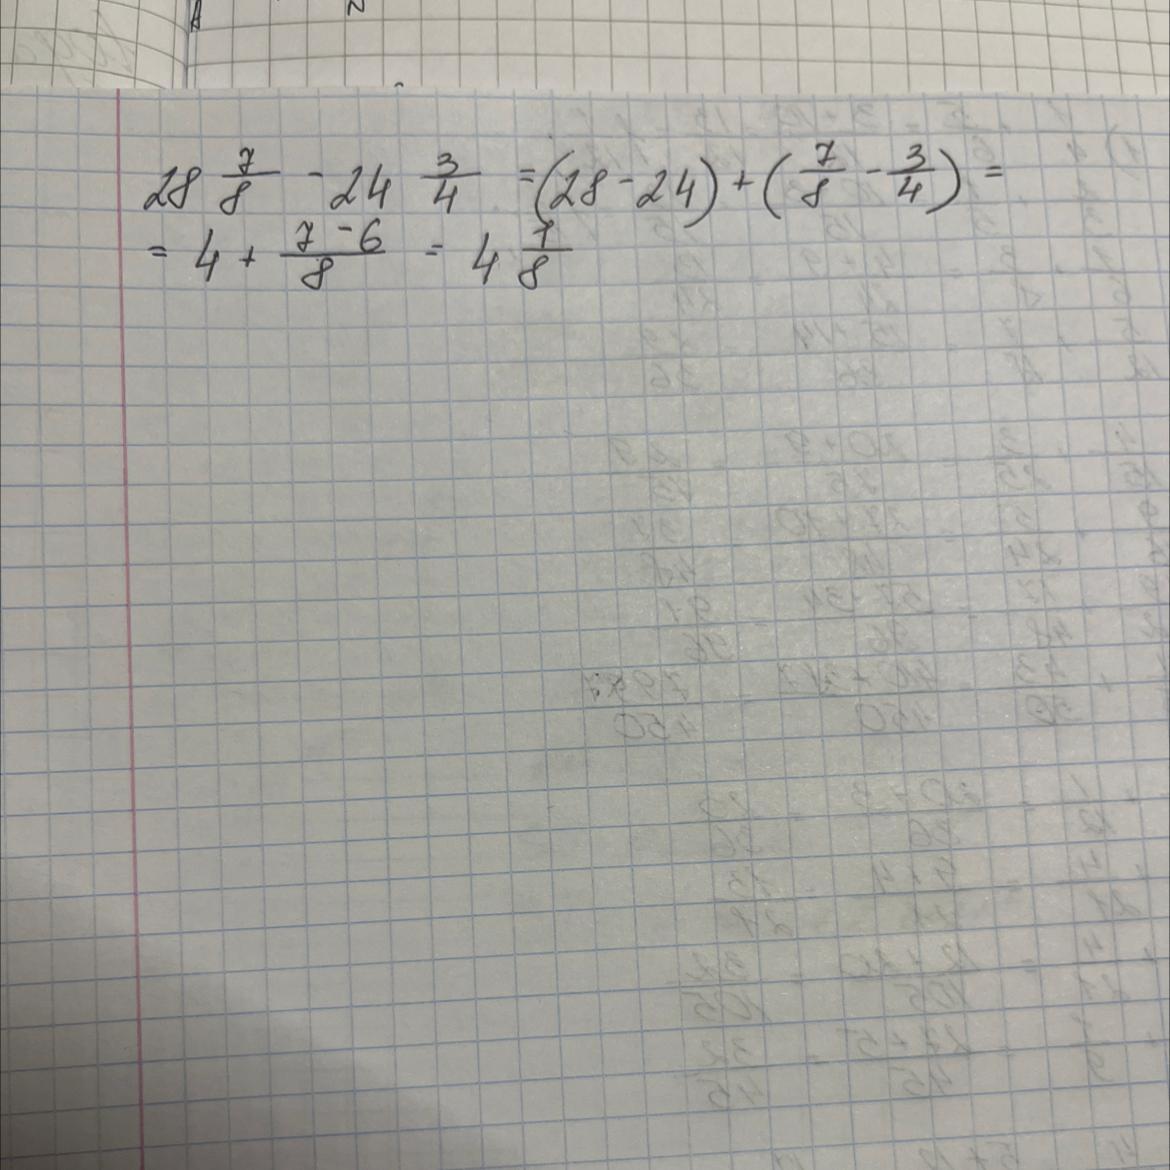 28 7/8 - 24 3/4 = (28 - 24) + (7/8 - 3/4) =
= 4 + (7 - 6)/8 = 4 7/8